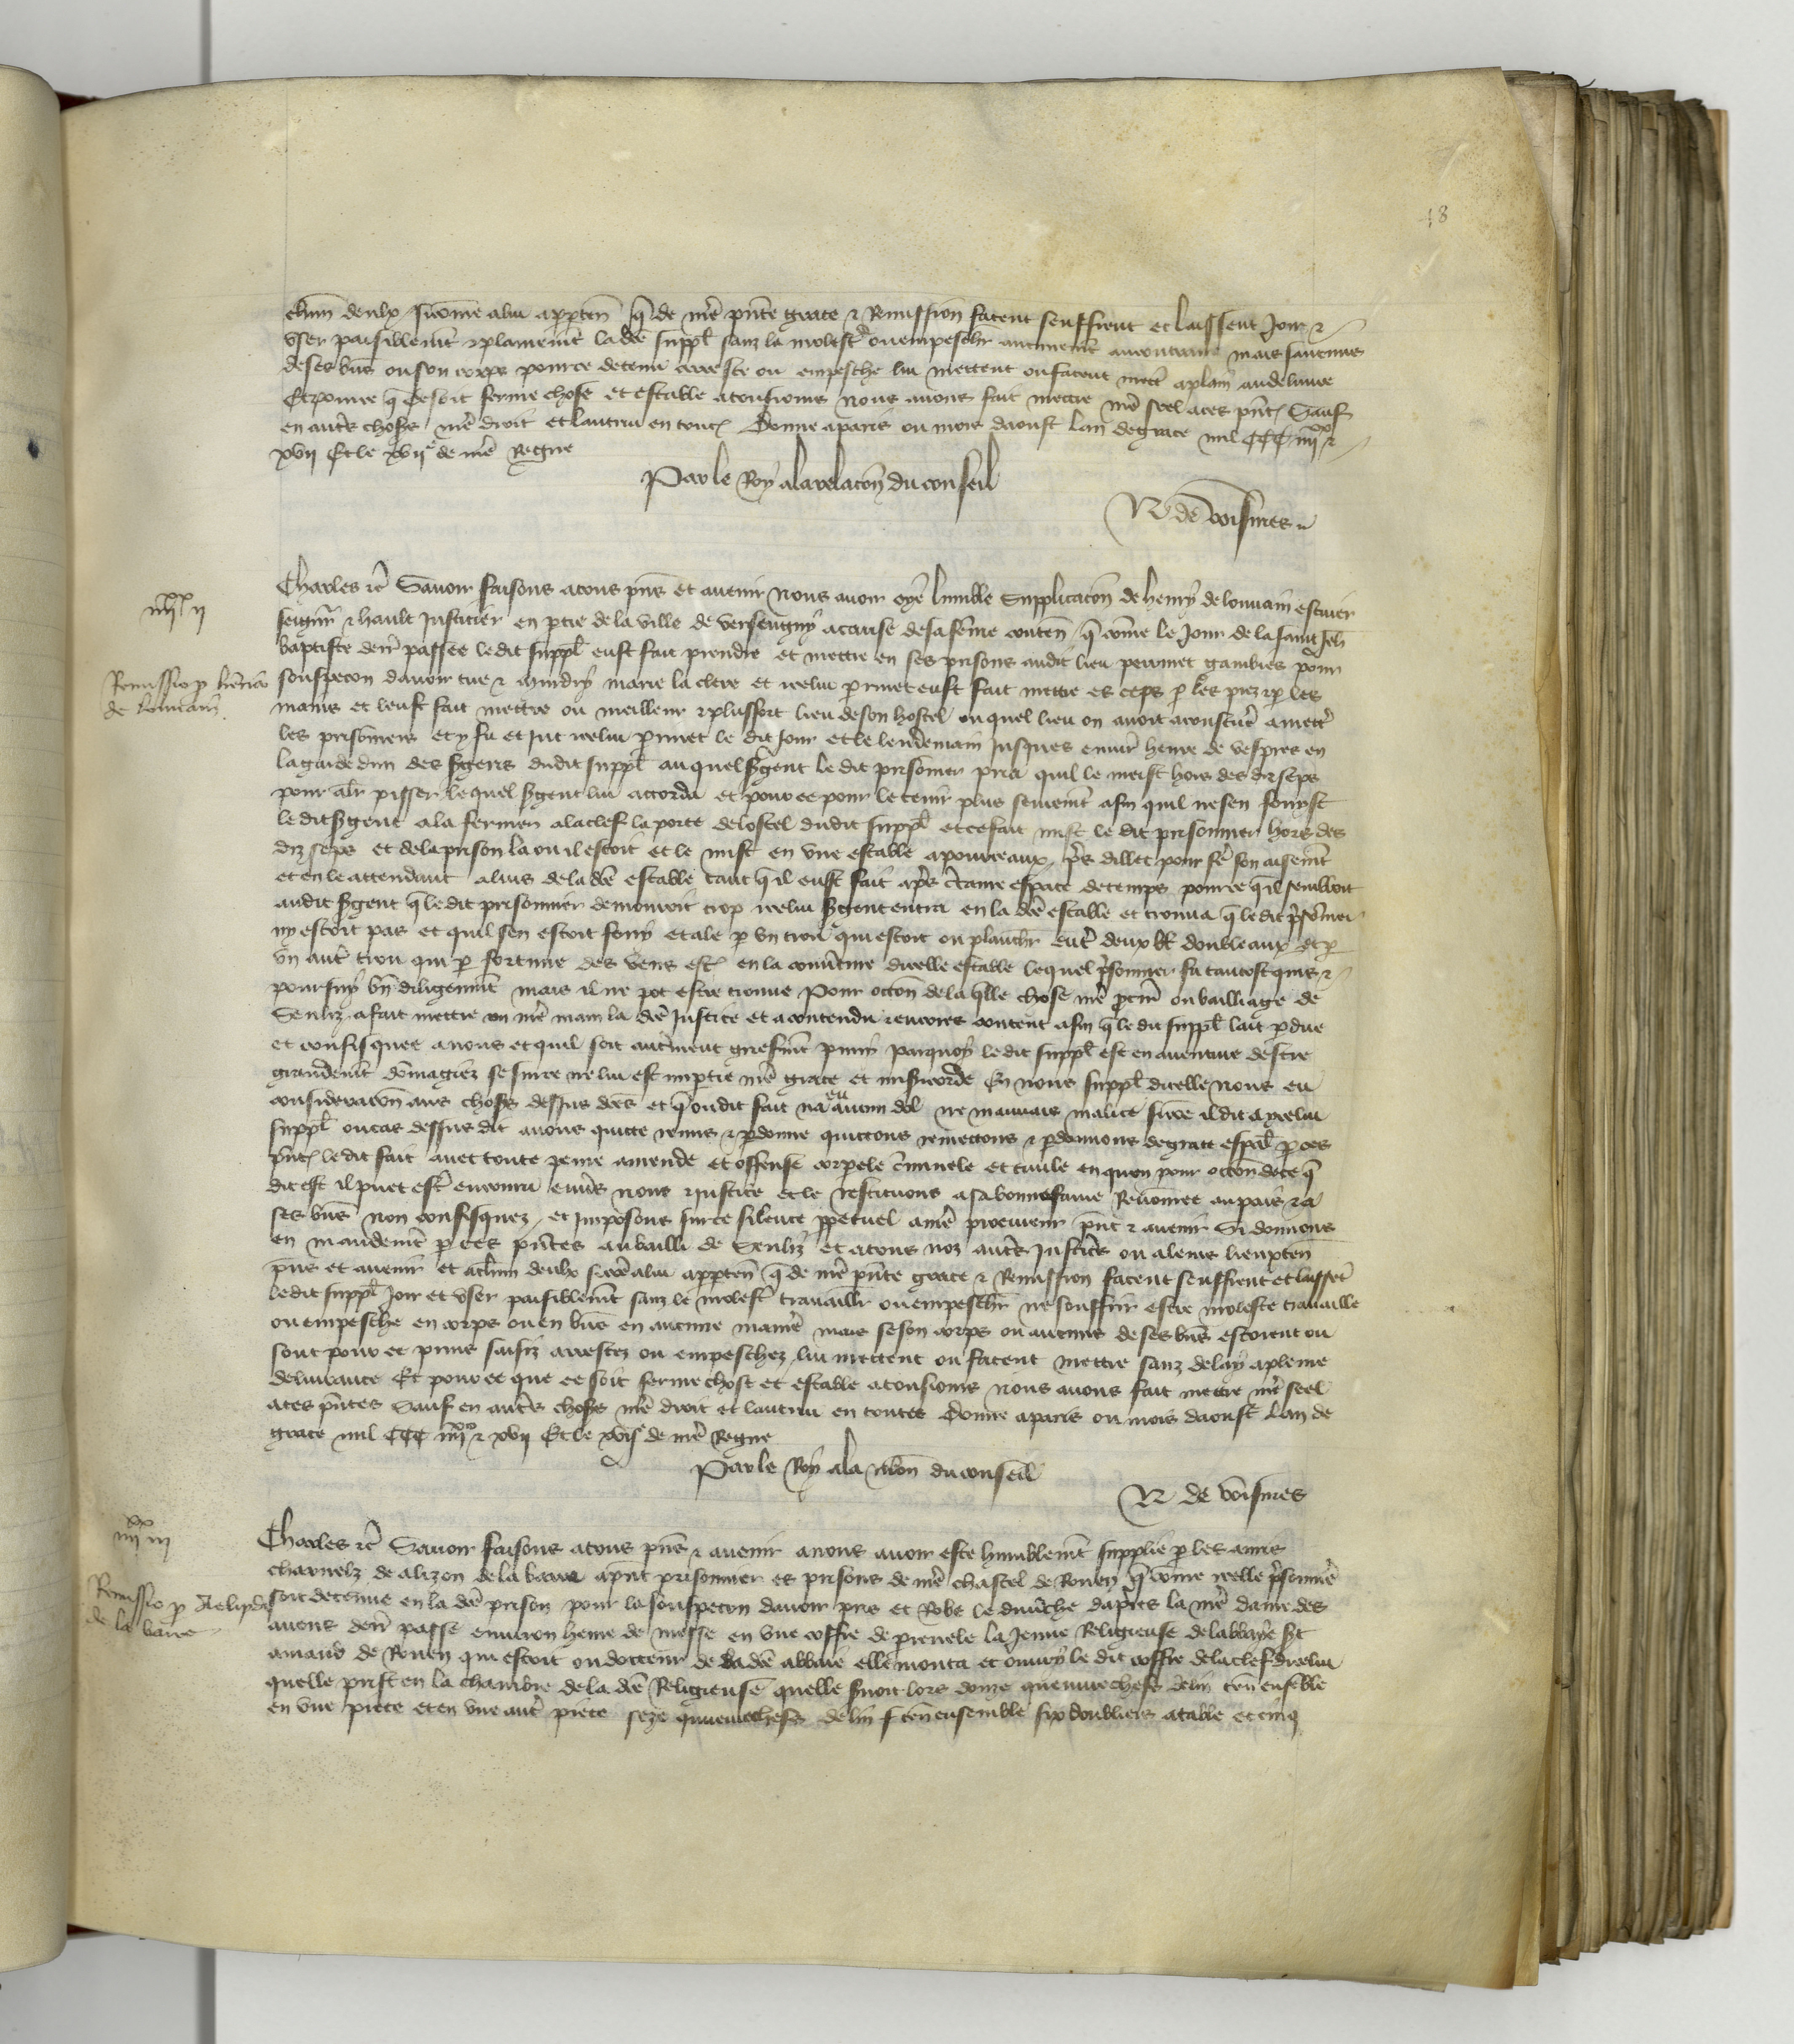 48
chun deulx si comme a lui appten que de nre pnte grace & Remission facent seuffrent et laissent Joir &
user paisiblemt & plainemt la dce suppl sanz la molest ou empescher aucunemt au contraire mais saucuns
de ses bns ou son corps pource detenu arreste ou empesche lui mettent ou facent mett a plain au delivre
Et pource que ce soit ferme chose et estable a tousjours nous avons fait mettre nre seel a ces pntes Sauf
en autres choses nre droit et lautrui en toutes Donne a paris ou mois daoust lan de grace mil CCC iiijxx &
xvij Et le xvije de nre Regne
Par le Roy a la relacon du conseil
N de voisines
iiijxx ij
Remissio p henrico de lovain
Charles &c Savoir faisons a tous pns et avenir Nous avoir oye lumble Supplicacon de henry de louvain escuier
seignr & hault Justicier en ptie de la ville de versengny a cause de sa feme conten que come le Jour de la saint Jeh
baptiste derr passee le dit suppl eust fait prendre et mettre en ses prisons audit lieu perrinet gambies pour
souspecon davoir tue & murdry marie la clere et icelui prinet eust fait mettre es ceps p les piez & p les
mains et leust fait mettre ou meilleur & plus fort lieu de son hostel ouquel lieu on avoit acoustume a mett
les prisonniers et y fu et Jut icelui prinet le dit Jour et le lendemain Jusques environ heure de vespres en
la garde dun des sgens dudit suppl auquel sgent le dit prisonnier pria quil le meist hors des diz seps
pour aler pisser lequel sgent lui accorda et pource pour le tenir plus seuremt afin quil ne sen fouyst
le dit sgent ala fermer a la clef la porte de lostel dudit suppl et ce fait mist le dit prisonnier hors des
diz seps et de la prison la ou il estoit et le mist en une estable a pourceaux pres dillec pour fe son aisemt
et en le attendant a luis de la dce estable tant que il eust fait apres certaine espace de temps pource que il sembloit
audit sgent que le dit prisonnier demouroit trop icelui sgent entra en la dce estable et trouva que le dit prisonnier
ny estoit pas et quil sen estoit fouy et ale p un trou qui estoit ou planch entre deux doubleaux et p
un autre trou qui p fortune des vens est en la couverture dicelle estable lequel prisonnier fu tantost quis &
poursuy bn diligemmt mais il ne pot estre trouve Pour occon de la quelle chose nre pcur ou bailliage de
Senliz a fait mettre en nre main la dce Justice et a contendu & encores content afin que le dit suppl lait pdue
et confisquee a nous et quil soit autrement griefmt puni parquoy le dit suppl est en aventure destre
grandemt dommagiez se sur ce ne lui est impartie nre grace et misericorde En nous suppl dicelle nous eu
consideracon aus choses dessus dces et que ou dit fait na eu aucun dol ne mauvais malice sicome il dit a ycelui
suppl ou cas dessus dit avons quitte remis & pdonne quittons remettons & pdonnons de grace espal p ces
pntes le dit fait avec toute peine amende et offense corpele criminele et civile en quoy pour occon de ce que
dit est il puet estre encouru envers nous & Justice et le restituons a sa bonne fame Renommee au pais & a
ses bns non confisquez et Imposons sur ce silence ppetuel a nre procureur pnt & avenir Si donnons
en mandemt p ces pntes au bailli de Senliz et a tous noz autres Justiciers ou a leurs lieuxten
pns et avenir et a chun deulx sicome a lui appten que de nre pnte grace & Remission facent seuffrent et laissent
le dit suppl Joir et user paisiblemt sanz le molester travaillr ou empescher ne souffrir estre moleste travaille
ou empesche en corps ou en bns en aucune maniere mais se son corps ou aucuns de ses bns estoient ou
sont pour ce prins saisiz arrestez ou empeschez lui mettent ou facent mettre sanz delay a pleine
delivrance Et pour ce que ce soit ferme chose et estable a tousjours nous avons fait mettre nre seel
a ces pntes Sauf en autres choses nre droit et lautrui en toutes Donne a paris ou mois daoust Lan de
grace mil CCC iiijxx & xvij Et le xvije de nre Regne
Par le Roy a la relacon du conseil
N de voisines
iiijxx iij
Remissio p Aelipdi de la barre
Charles &c Savoir faisons a tous pns & avenir a nous avoir este humblemt supplie p les amis
charnelz de alizon de la barre a pnt prisonniere es prisons de nre chastel de Rouen que come icelle prisonniere
soit detenue en la dce prison pour la souspecon davoir pris et Robe le dimenche dapres la nre dame des
avens derr passe environ heure de messe en une coffre de perenele la Jeune Religieuse de labbaye St
amand de Rouen qui estoit ou dorteur de la dce abbaie elle monta et ouvry le dit coffre de la clef dicelui
quelle prist en la chambre de la dce Religieuse quelle savoit lors donze queuvrechefs de lin ten ensemble
en une piece et en une autre piece seze queuvrechefs de lin ten ensemble six doubliers a table et cinq